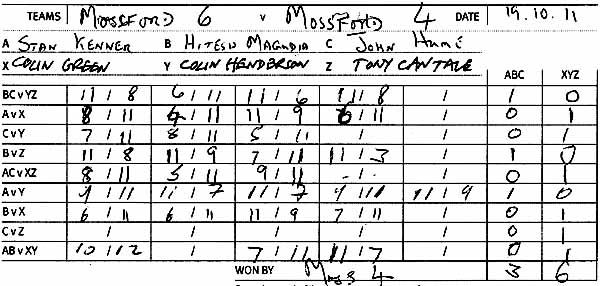 TEAMS MOSSFORD 6 V MOSSFORD 4 DATE 19.10.11
A STAN KENNER B HITESH MAGUDIA C JOHN HUME
X COLIN GREEN Y COLIN HENDERSON Z TONY CANTALE ABC XYZ
BC v YZ 11 / 8 6 / 11 11 / 6 11 / 8 / 1 0
A v X 8 / 11 4 / 11 11 / 9 6 / 11 / 0 1
C v Y 7 / 11 8 / 11 5 / 11 / / 0 1
B v Z 11 / 8 11 / 9 7 / 11 11 / 3 / 1 0
AC v XZ 8 / 11 5 / 11 9 / 11 - . - / 0 1
A v Y 9 / 11 11 / 7 11 / 7 9 / 11 11 / 9 1 0
B v X 6 / 11 6 / 11 11 / 9 7 / 11 / 0 1
C v Z / / / / / 0 1
AB v XY 10 / 12 / 7 / 11 11 / 7 / 0 1
WON BY Moss 4 3 6